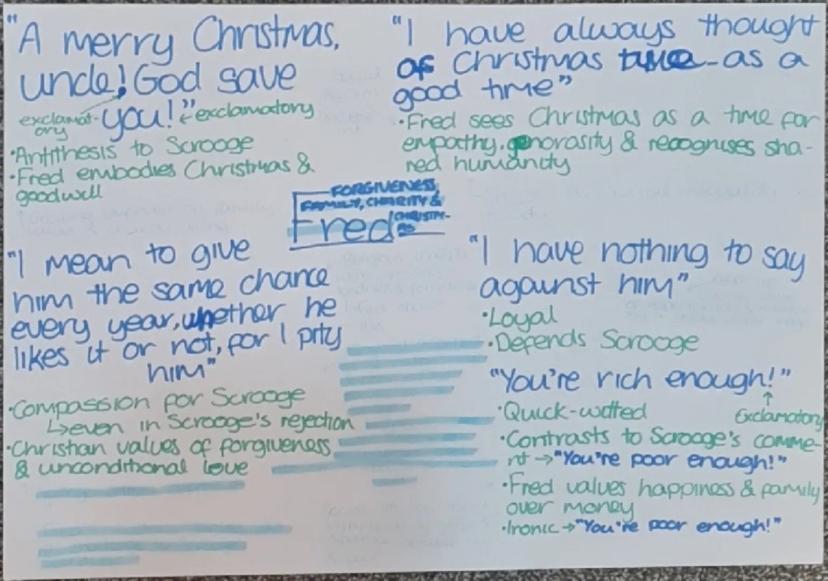 "A merry Christmas,
uncle! God save
you!" ← exclamatory
exclamat-
ory
·Antithesis to Scrooge
·Fred embodies Christmas &
goodwill
"I have always thought
of Christmas time as a
good time"
·Fred sees Christmas as a time for
empathy, generosity & recognises sha-
red humanity
FORGIVENESS,
FAMILY, CHARITY &
Fred
"I mean to give
him the same chance
every year, whether he
likes it or not, for I pity
him"
·Compassion for Scrooge
↳even in Scrooge's rejection
·Christian values of forgiveness
& unconditional love
"I have nothing to say
against him"
·Loyal
·Defends Scrooge
"You're rich enough!"
↑
Exclamatory
·Quick-witted
·Contrasts to Scrooge's comme-
nt → "You're poor enough!"
·Fred values happiness & family
over money
·Ironic → "You're poor enough!"